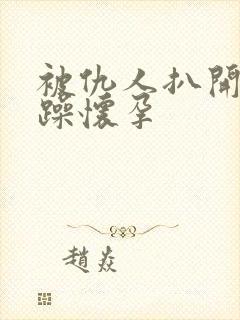 被仇人扒開
躁懷孕
趙焱